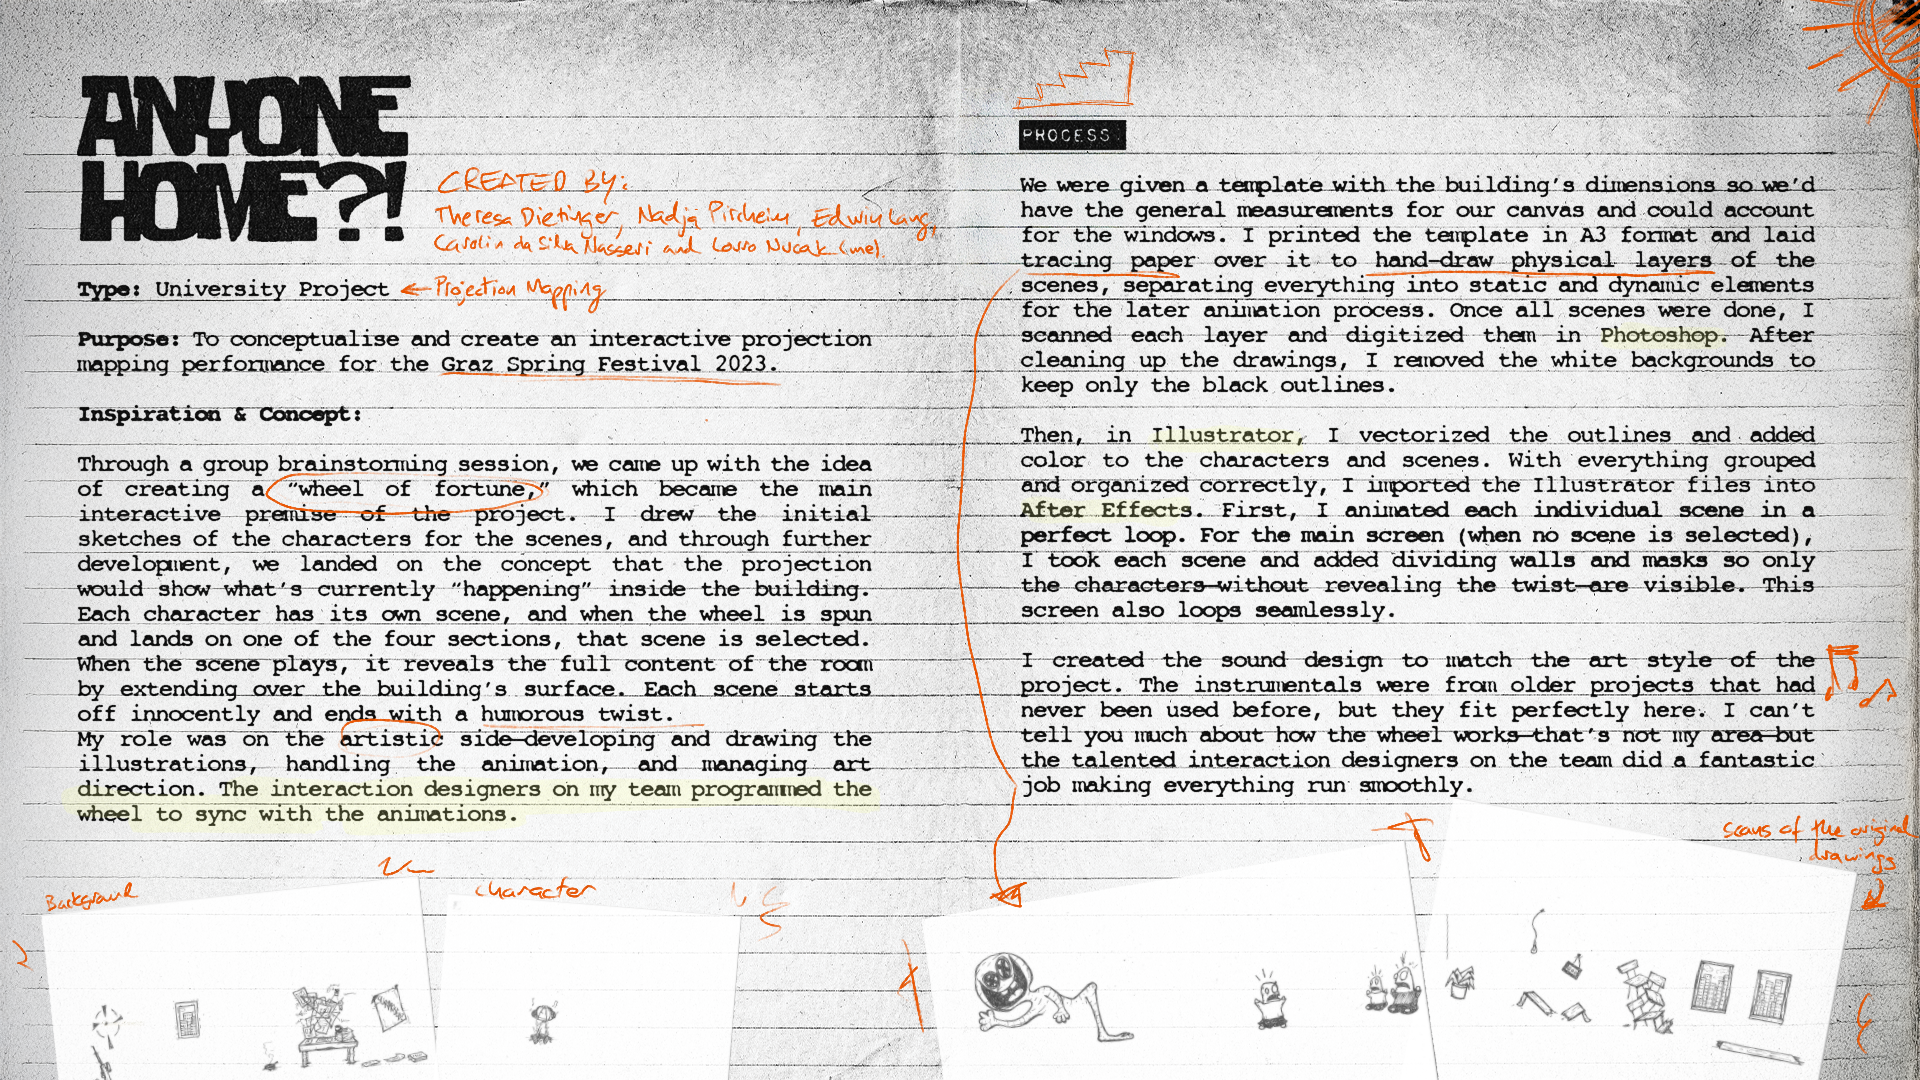 ANYONE
HOME?!
CREATED BY:
Theresa Dietinger, Nadja Pircheim, Edwin Lang,
Carolin da Silva Nasseri and Lovro Novak (me).
Type: University Project ← Projection Mapping
Purpose: To conceptualise and create an interactive projection
mapping performance for the Graz Spring Festival 2023.
Inspiration & Concept:
Through a group brainstorming session, we came up with the idea
of creating a “wheel of fortune,” which became the main
interactive premise of the project. I drew the initial
sketches of the characters for the scenes, and through further
development, we landed on the concept that the projection
would show what’s currently “happening” inside the building.
Each character has its own scene, and when the wheel is spun
and lands on one of the four sections, that scene is selected.
When the scene plays, it reveals the full content of the room
by extending over the building’s surface. Each scene starts
off innocently and ends with a humorous twist.
My role was on the artistic side—developing and drawing the
illustrations, handling the animation, and managing art
direction. The interaction designers on my team programmed the
wheel to sync with the animations.
Background
character
PROCESS
We were given a template with the building’s dimensions so we’d
have the general measurements for our canvas and could account
for the windows. I printed the template in A3 format and laid
tracing paper over it to hand-draw physical layers of the
scenes, separating everything into static and dynamic elements
for the later animation process. Once all scenes were done, I
scanned each layer and digitized them in Photoshop. After
cleaning up the drawings, I removed the white backgrounds to
keep only the black outlines.
Then, in Illustrator, I vectorized the outlines and added
color to the characters and scenes. With everything grouped
and organized correctly, I imported the Illustrator files into
After Effects. First, I animated each individual scene in a
perfect loop. For the main screen (when no scene is selected),
I took each scene and added dividing walls and masks so only
the characters—without revealing the twist—are visible. This
screen also loops seamlessly.
I created the sound design to match the art style of the
project. The instrumentals were from older projects that had
never been used before, but they fit perfectly here. I can’t
tell you much about how the wheel works—that’s not my area—but
the talented interaction designers on the team did a fantastic
job making everything run smoothly.
scans of the original
drawings